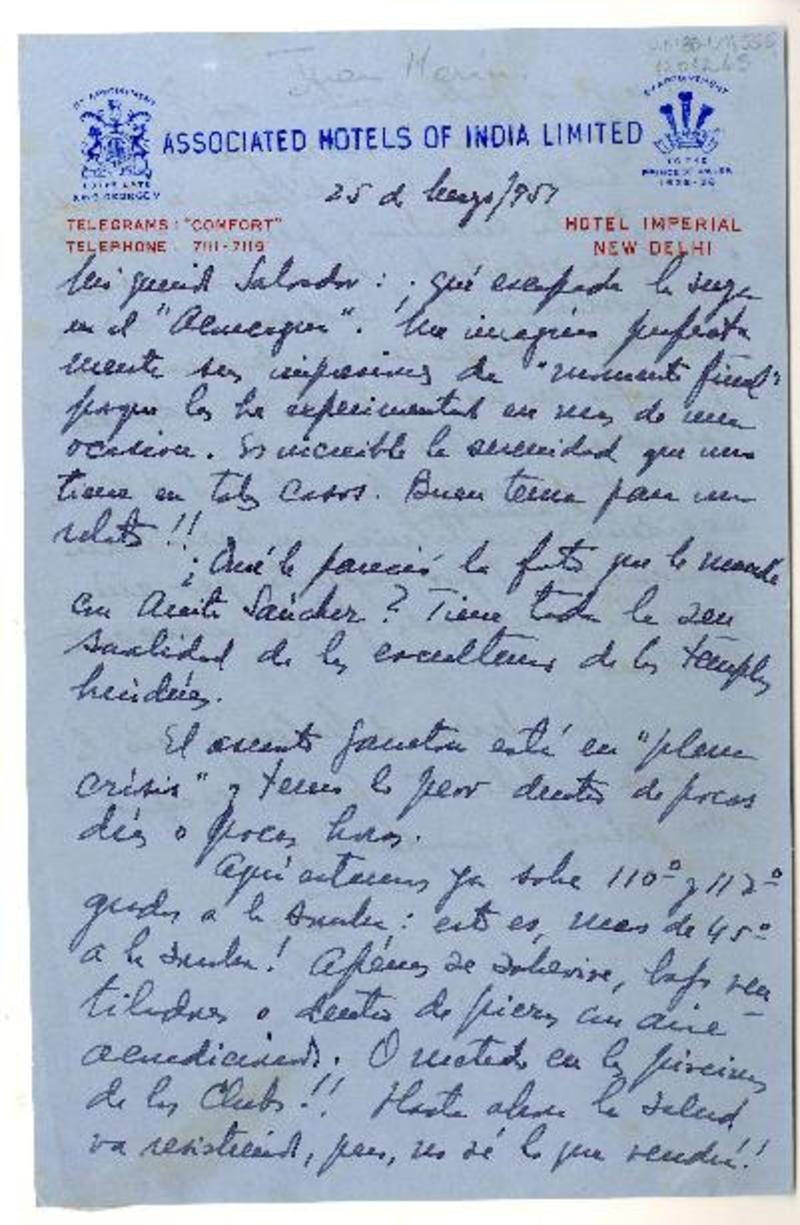 Juan Marín
BY APPOINTMENT
TO THE LATE
KING GEORGE V
ASSOCIATED HOTELS OF INDIA LIMITED
BY APPOINTMENT
TO THE
PRINCE OF WALES
25 d /957
TELEGRAMS: "COMFORT"
TELEPHONE: 7111-7119
HOTEL IMPERIAL
NEW DELHI
Mi querido Salvador: ¡qué escapada la suya
en el ! Me imagino perfecta
mente sus impresiones de "momento final"
porque las he experimentado en mas de una
ocasion. Es increible la serenidad que uno
tiene en tales casos. Buen tema para un
relato!!
¿Qué le pareció la foto que le mandé
con Sánchez? Tiene toda la sen
sualidad de las esculturas de los templos
hindúes.
El asunto está en "plena
crisis" y temo lo peor dentro de pocos
días o pocas horas.
Aquí estamos ya sobre 110º y 112º
grados a la sombra: esto es, mas de 45º
a la sombra! Apénas se sobrevive, bajo ven
tiladores o dentro de piezas con aire
acondicionado. O metido en las piscinas
de los Clubs!! Hasta ahora la salud
va resistiendo, pero, no sé lo que vendrá!!